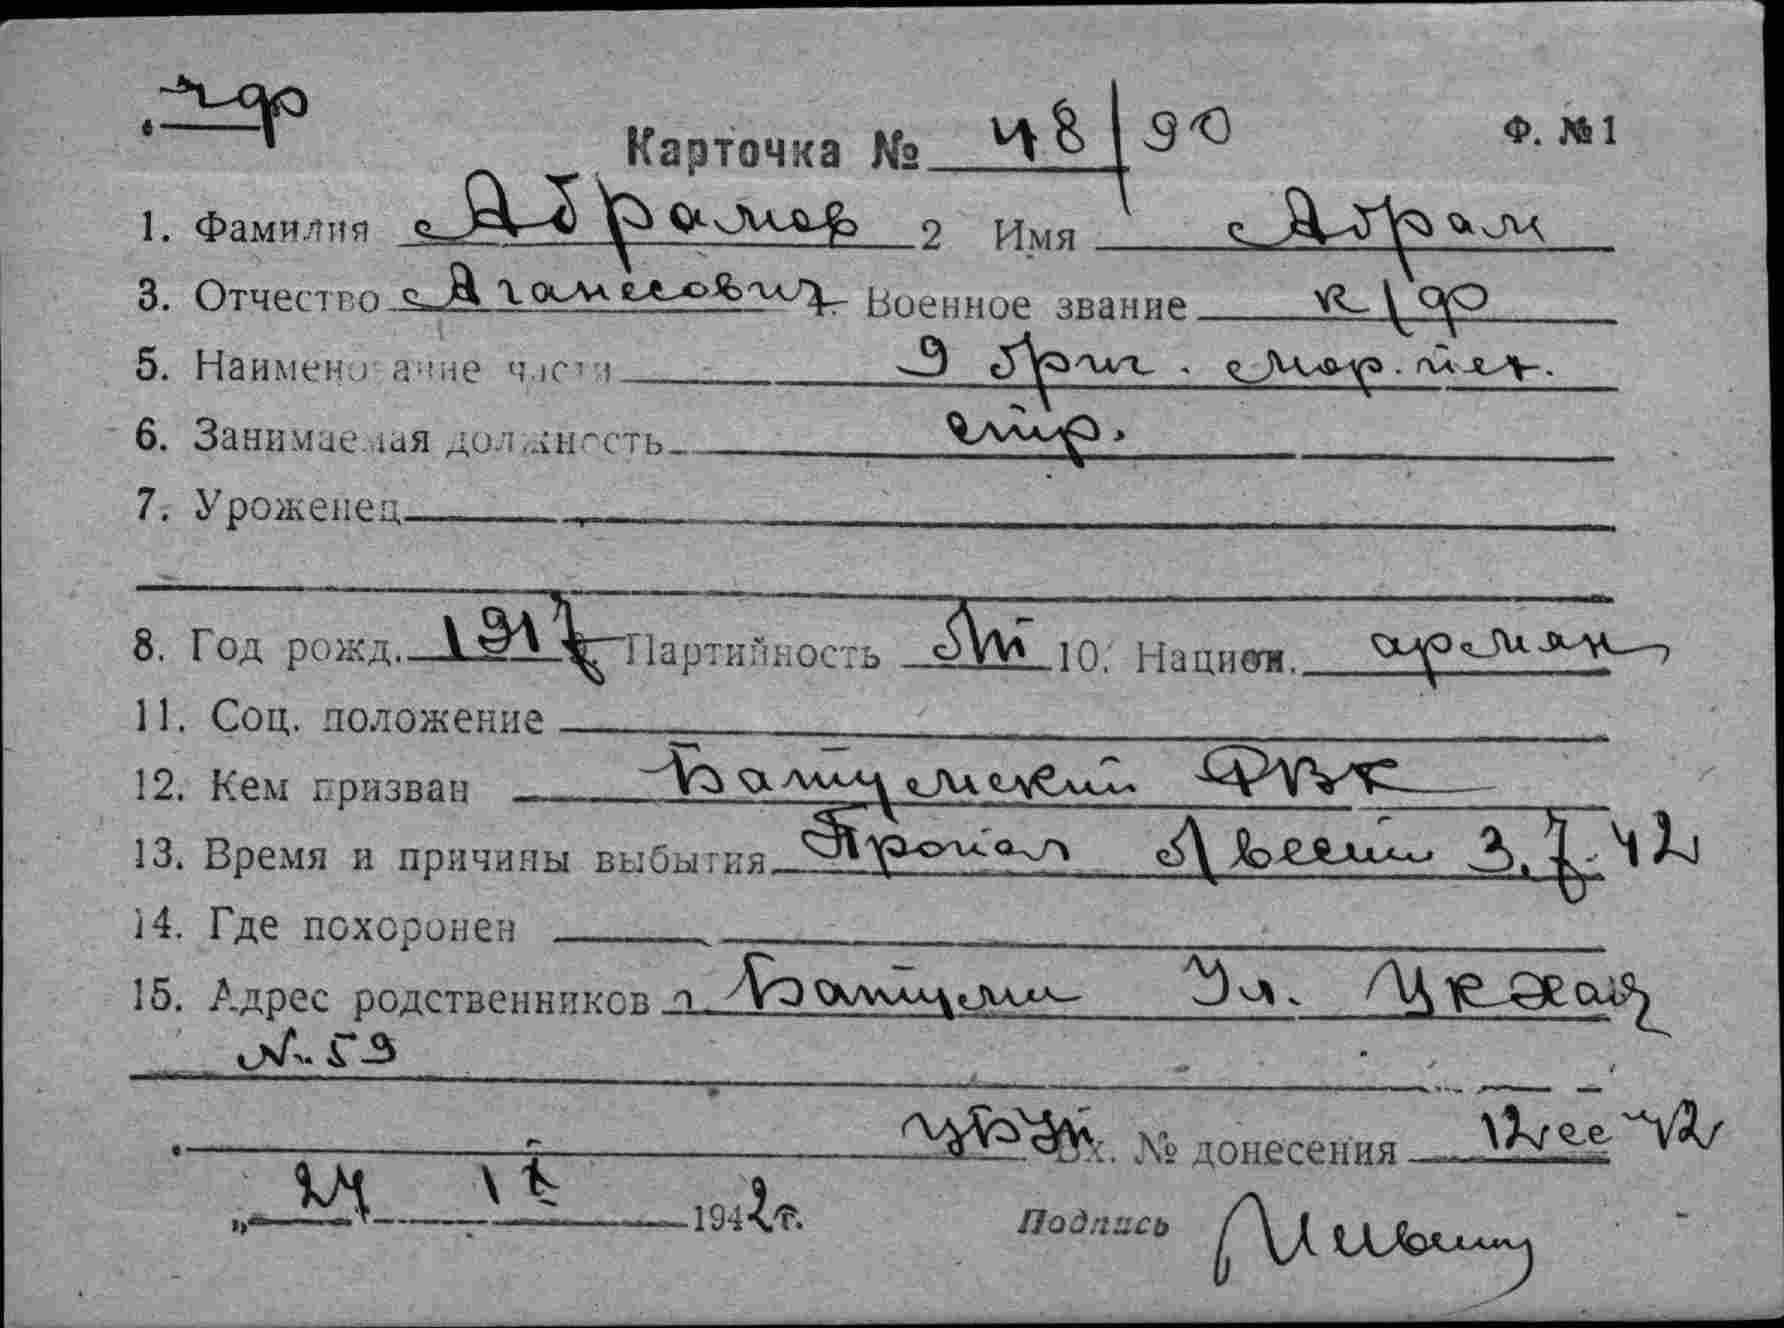 чф
Карточка № 48/90 Ф. №1
1. Фамилия Абрамов 2 Имя Абрам
3. Отчество Аганесович Военное звание к/ф
5. Наименование части 9 бриг. мор. пех.
6. Занимаемая должность стр.
7. Уроженец
8. Год рожд. 1917 Партийность б/п 10. Национ. армян
11. Соц. положение
12. Кем призван Батумский РВК
13. Время и причины выбытия Пропал б/вести 3.7.42
14. Где похоронен
15. Адрес родственников г. Батуми Ул. Цкхая
№ 59
Вх. № донесения
„24 1942г. Подпись